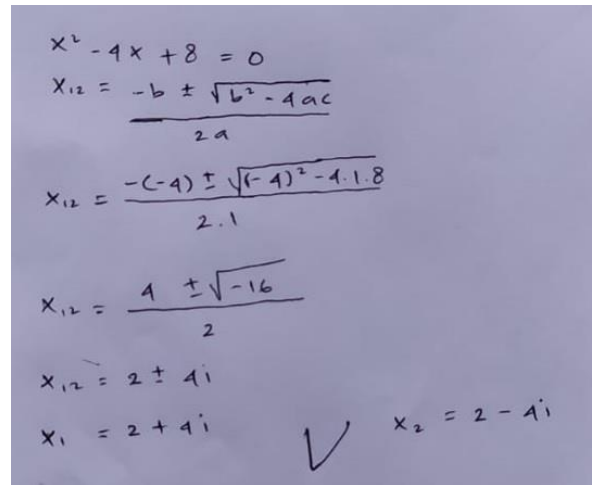 x² - 4x + 8 = 0
x₁₂ = (-b ± √(b² - 4ac)) / 2a
x₁₂ = (-(-4) ± √((-4)² - 4.1.8)) / 2.1
x₁₂ = (4 ± √(-16)) / 2
x₁₂ = 2 ± 4i
x₁ = 2 + 4i V x₂ = 2 - 4i